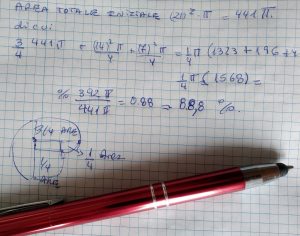 AREA TOTALE INIZIALE (21)² · π = 441 π.
di cui
3/4 441 π + (14)² π/4 + (7)² π/4 = 1/4 π (1323 + 196 + 4
1/4 π (1568) =
% 392 π/441 π = 0.88 ⇒ 88,8 %.
3/4 AREA
1/4 AREA
1/4
AREA